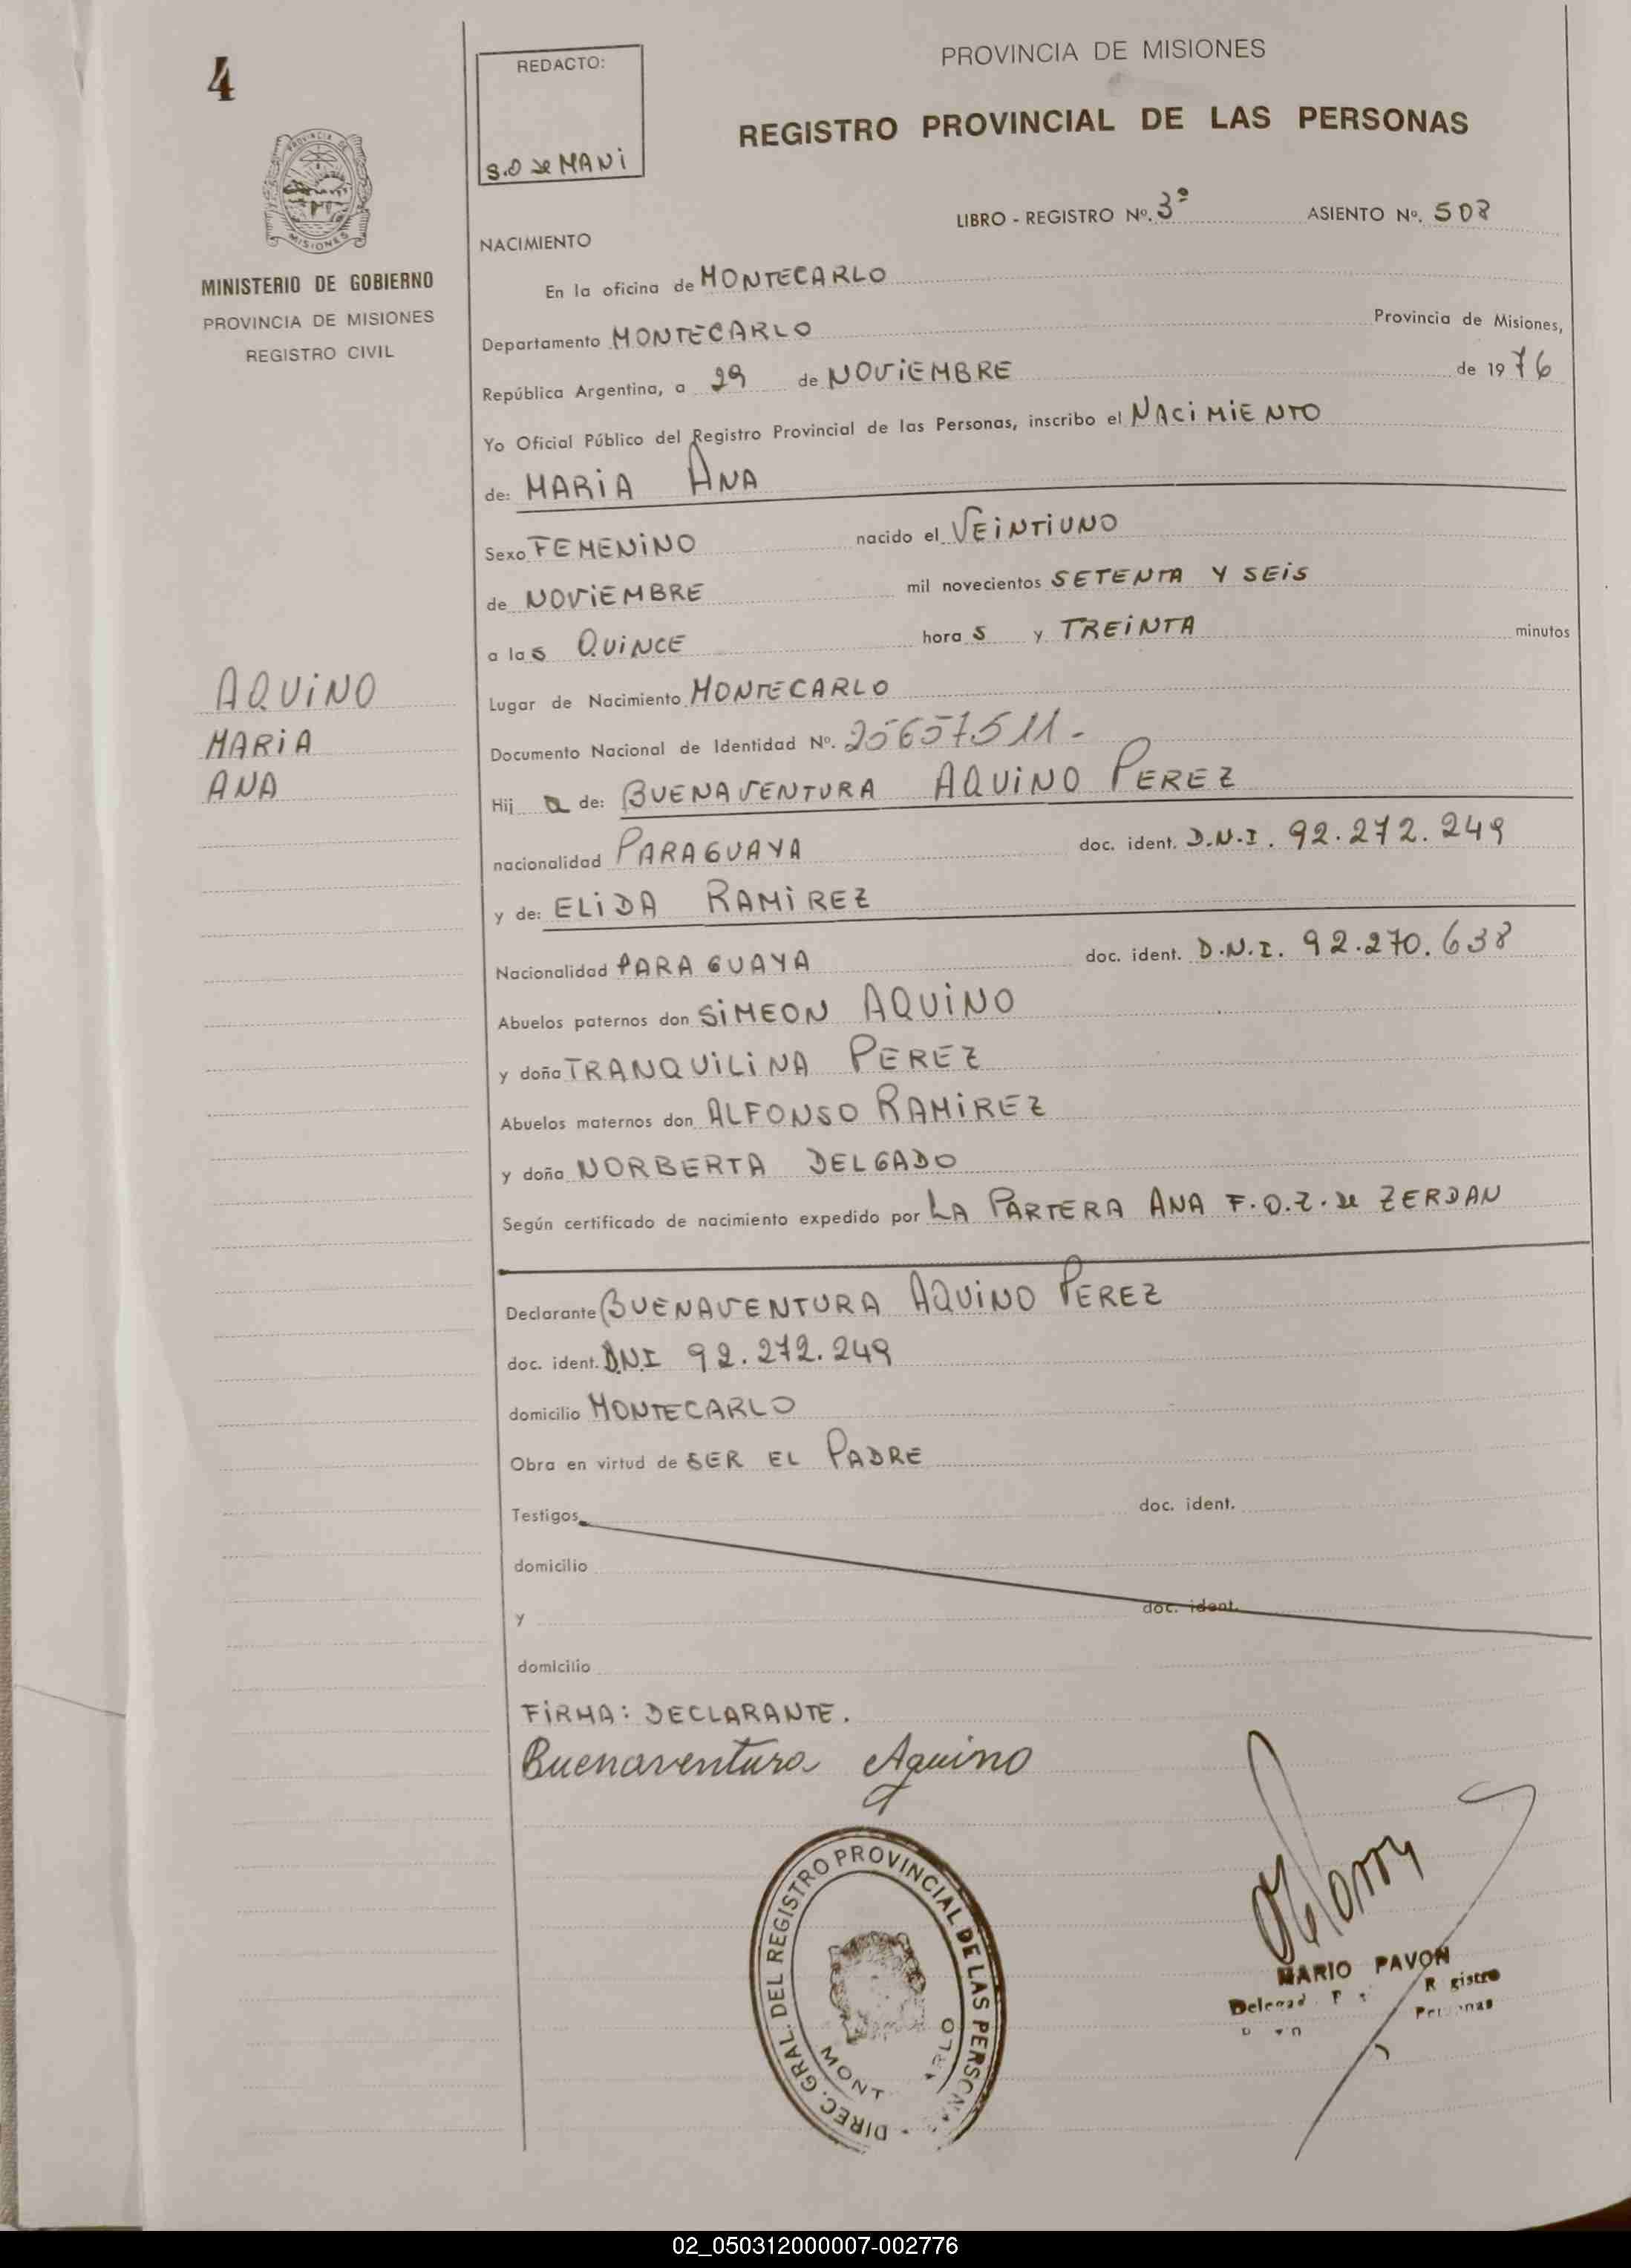 4
REDACTO:
S.O de MANI
PROVINCIA DE MISIONES
REGISTRO PROVINCIAL DE LAS PERSONAS
LIBRO - REGISTRO Nº. 3º ASIENTO Nº. 508
PROVINCIA DE
MISIONES
MINISTERIO DE GOBIERNO
PROVINCIA DE MISIONES
REGISTRO CIVIL
NACIMIENTO
En la oficina de MONTECARLO
Departamento MONTECARLO Provincia de Misiones,
República Argentina, a 29 de NOViEMBRE de 1976
Yo Oficial Público del Registro Provincial de las Personas, inscribo el NACiMiENTO
de: MARiA ANA
Sexo FEMENiNO nacido el VEiNTiUNO
de NOViEMBRE mil novecientos SETENTA Y SEiS
a las QUiNCE horas y TREiNTA minutos
AQUiNO
MARiA
ANA
Lugar de Nacimiento MONTECARLO
Documento Nacional de Identidad Nº. 25657511.-
Hija de: BUENAVENTURA AQUiNO PEREZ
nacionalidad PARAGUAYA doc. ident. D.N.I. 92.272.249
y de: ELiDA RAMiREZ
Nacionalidad PARAGUAYA doc. ident. D.N.I. 92.270.638
Abuelos paternos don SiMEON AQUiNO
y doña TRANQUiLiNA PEREZ
Abuelos maternos don ALFONSO RAMiREZ
y doña NORBERTA DELGADO
Según certificado de nacimiento expedido por LA PARTERA ANA F.O.Z. de ZERDAN
Declarante BUENAVENTURA AQUiNO PEREZ
doc. ident. D.N.I 92.272.249
domicilio MONTECARLO
Obra en virtud de SER EL PADRE
Testigos doc. ident.
domicilio
y doc. ident.
domicilio
FiRMA: DECLARANTE.
Buenaventura Aquino
DIREC. GRAL. DEL REGISTRO PROVINCIAL DE LAS PERSONAS
MARIO PAVON
02_050312000007-002776